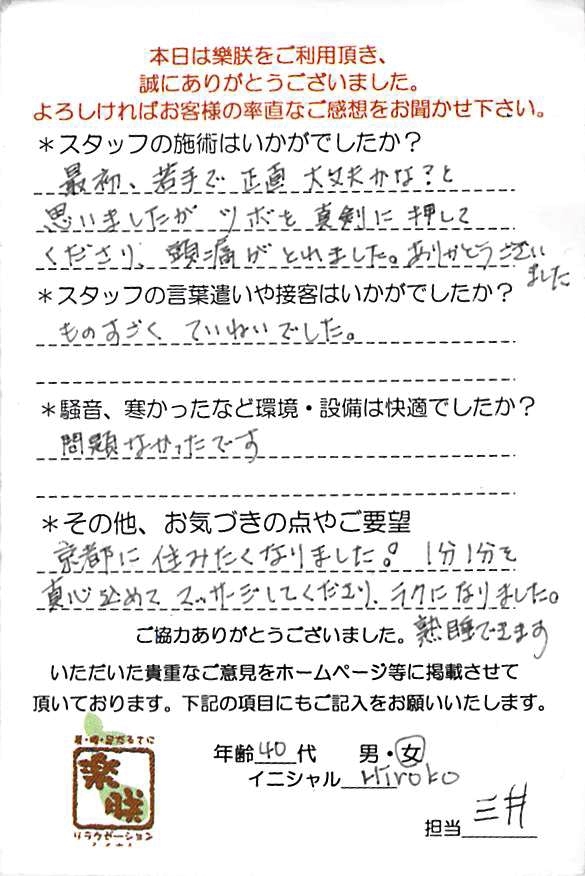 本日は樂朕をご利用頂き、
誠にありがとうございました。
よろしければお客様の率直なご感想をお聞かせ下さい。
＊スタッフの施術はいかがでしたか？
最初、若手で正直大丈夫かな？と
思いましたがツボを真剣に押して
くださり、頭痛がとれました。ありがとうござい
ました
＊スタッフの言葉遣いや接客はいかがでしたか？
ものすごくていねいでした。
＊騒音、寒かったなど環境・設備は快適でしたか？
問題なかったです
＊その他、お気づきの点やご要望
京都に住みたくなりました。1分1分を
真心込めてマッサージしてくださり、ラクになりました。
熟睡できます
ご協力ありがとうございました。
いただいた貴重なご意見をホームページ等に掲載させて
頂いております。下記の項目にもご記入をお願いいたします。
年齢40代 男・女
イニシャル Hiroko
担当 三井
樂朕
リラクゼーション